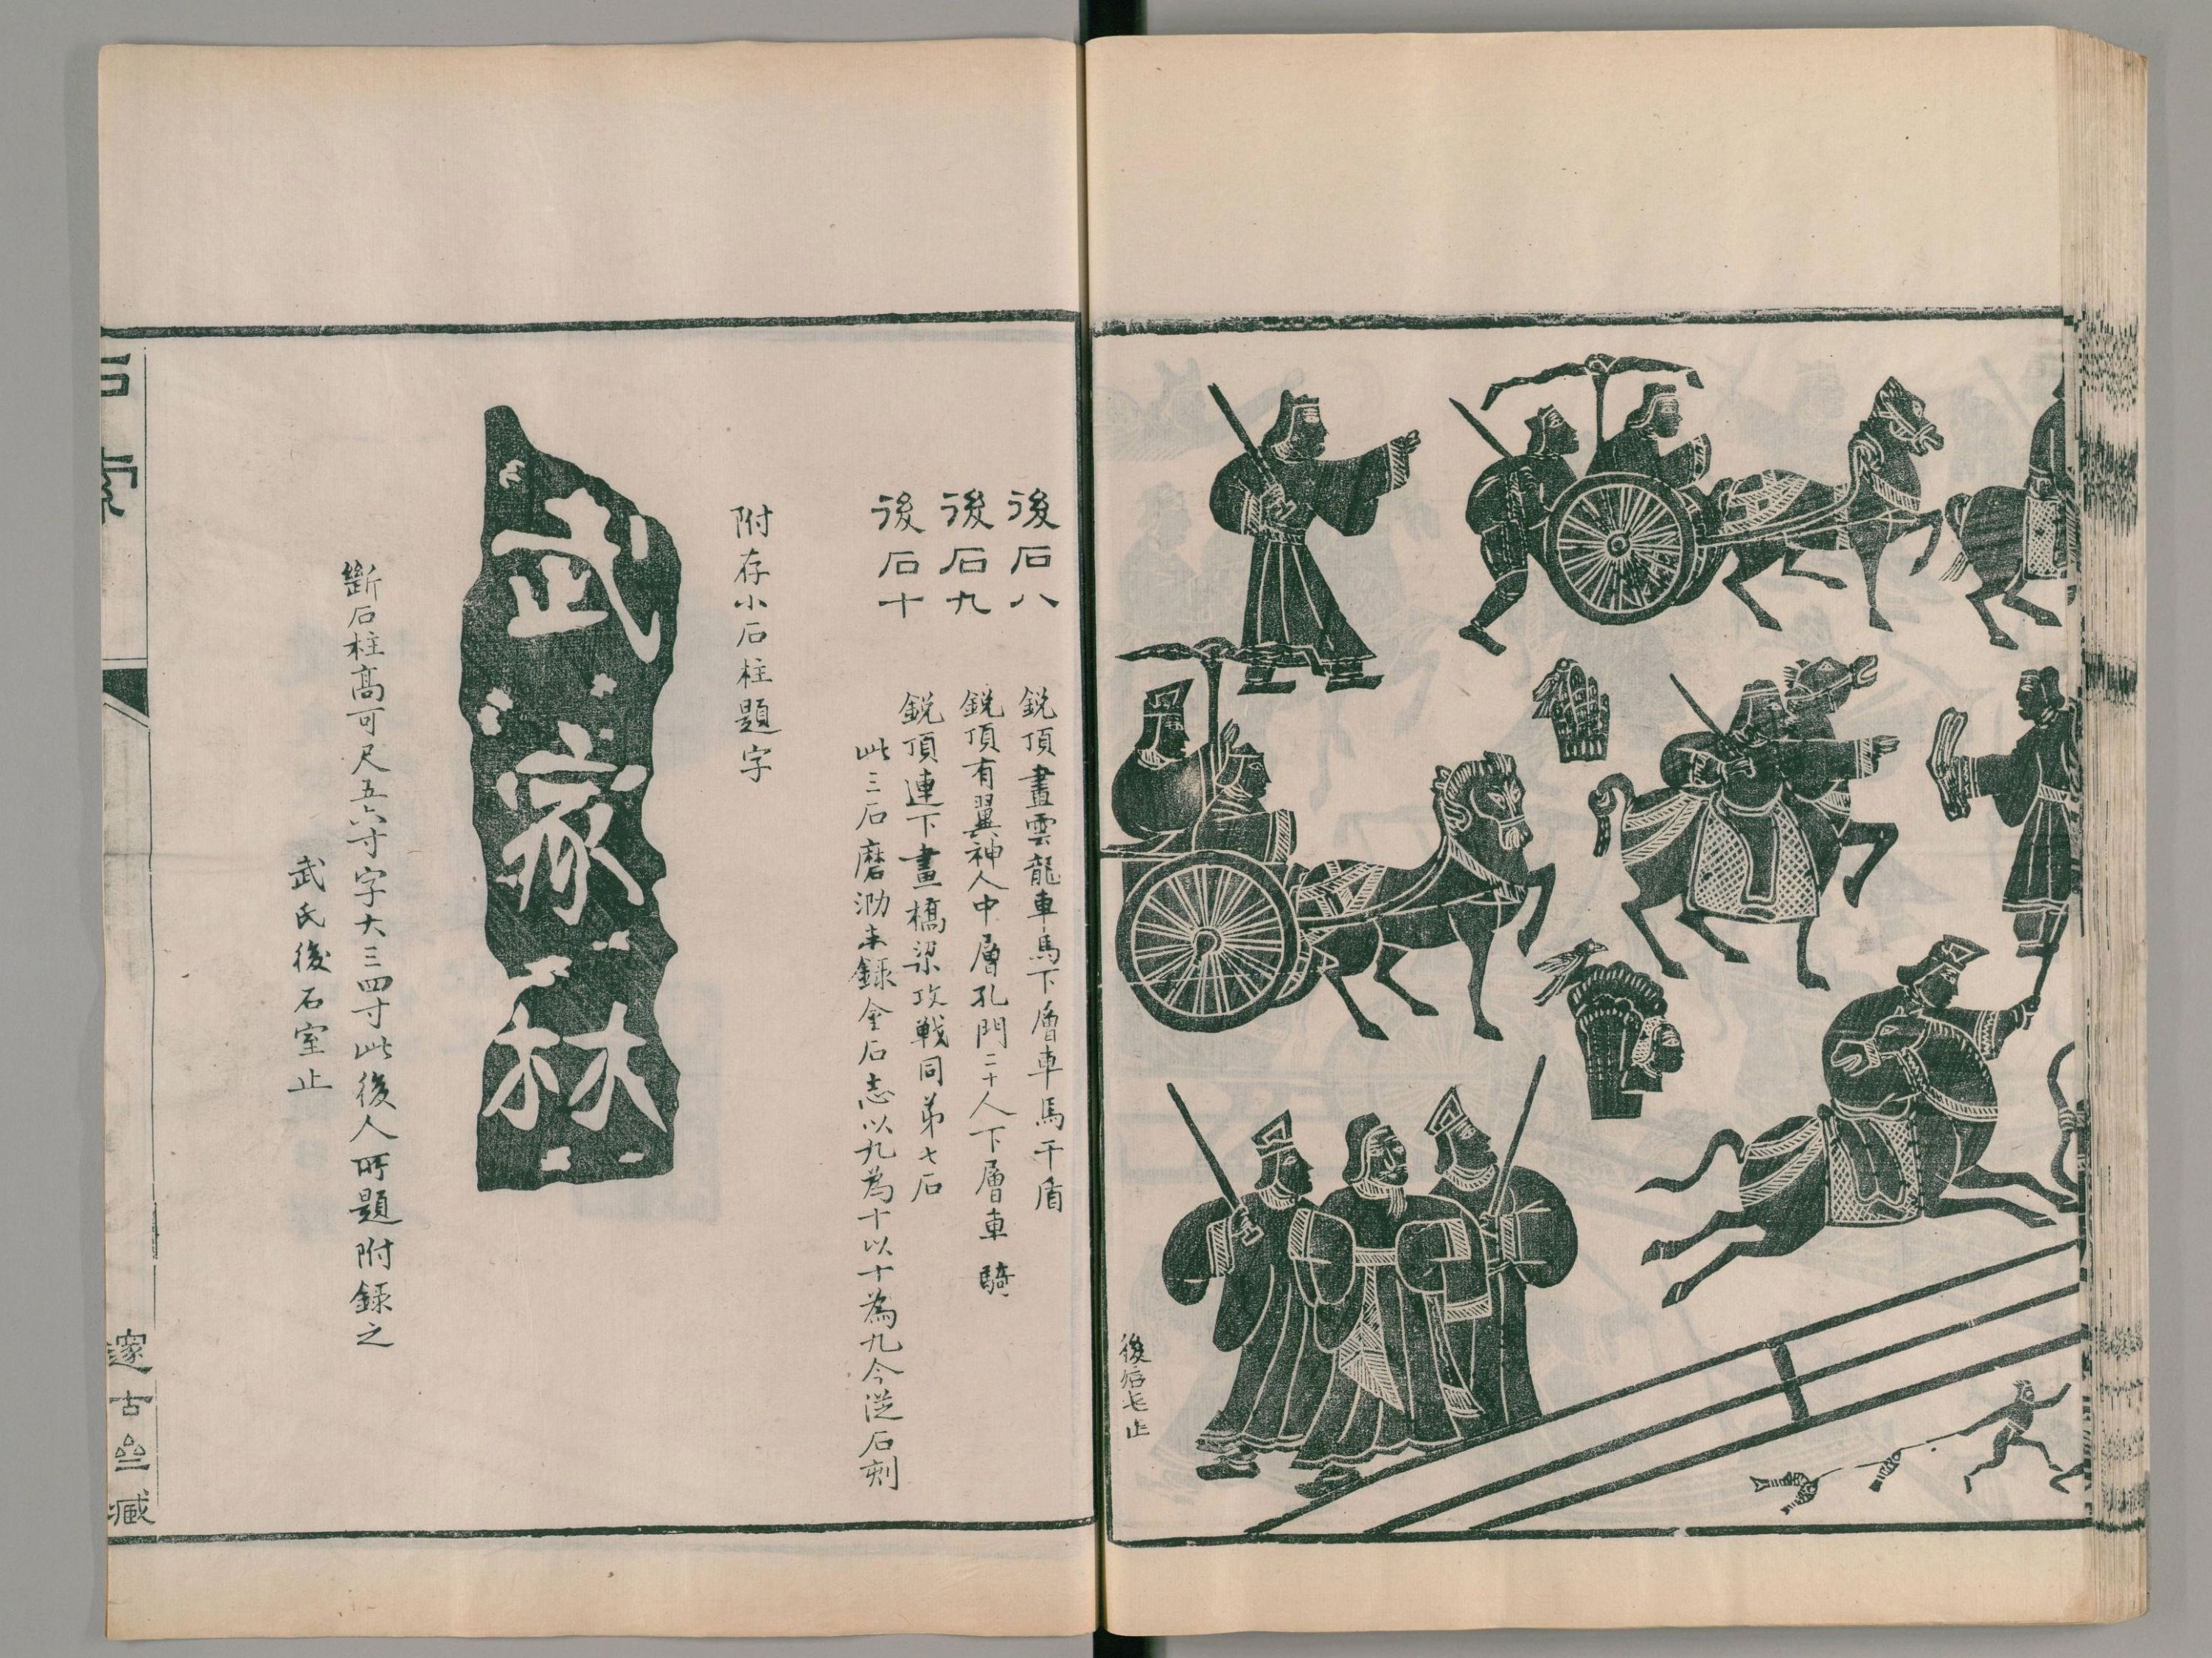 後石七止
後石八 銳頂畫雲龍車馬下層車馬干盾
後石九 銳頂有翼神人中層孔門二十人下層車騎
後石十 銳頂連下畫橋梁攻戰同弟七石
此三石磨泐未錄金石志以九為十以十為九今從石刻
附存小石柱題字
武家林
斷石柱高可尺五六寸字大三四寸此後人所題附錄之
武氏後石室止
石索
邃古齋藏